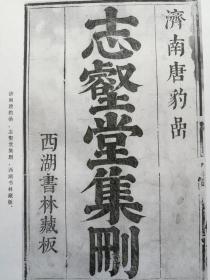 濟南唐豹嵒
志壑堂集刪
西湖書林藏板
济南唐豹嵒·志壑堂集删·西湖书林藏版。